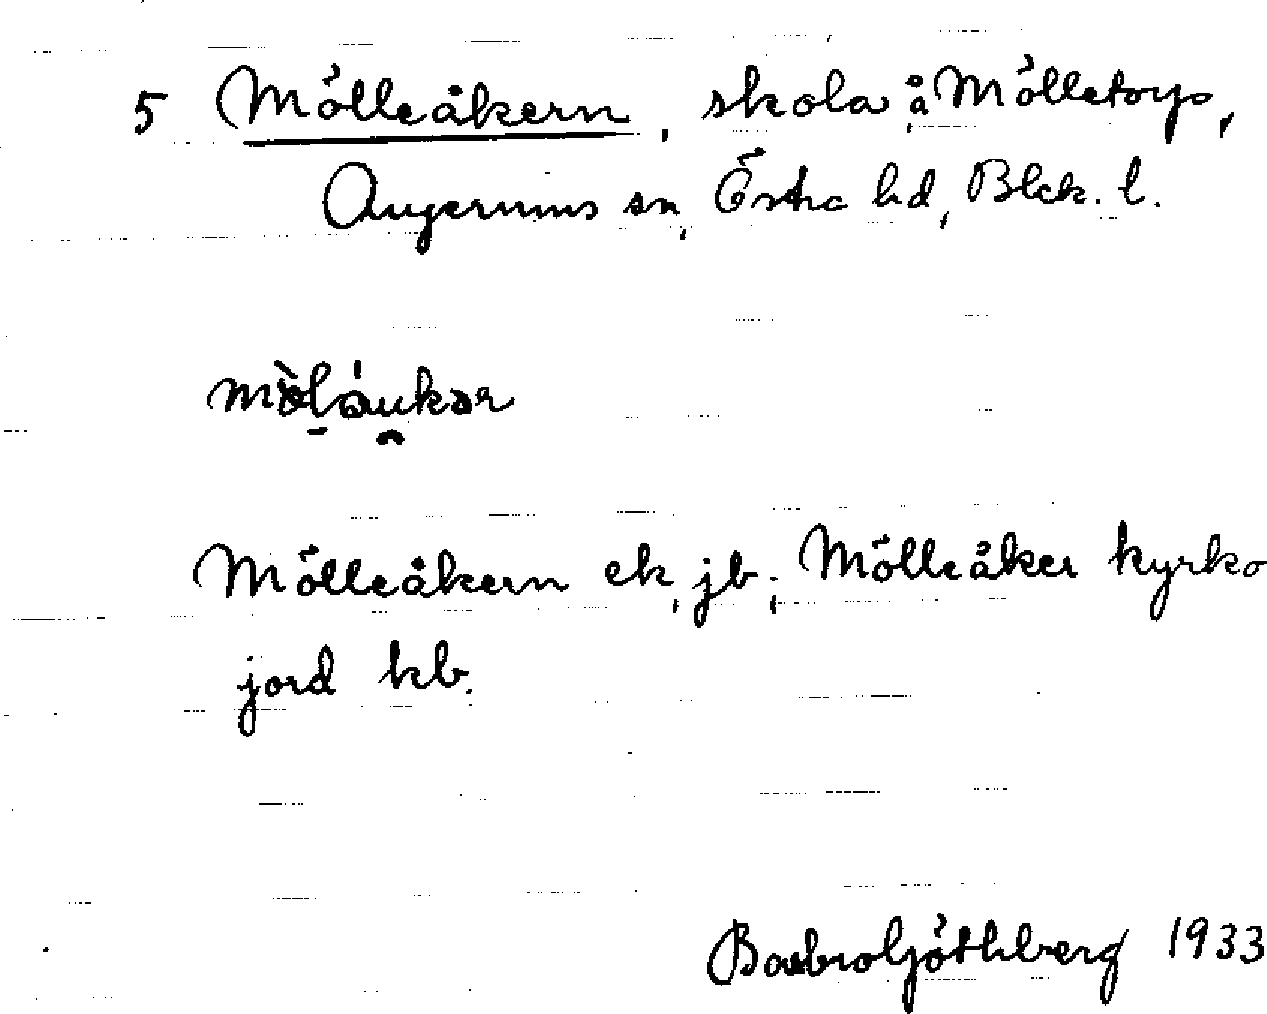 5 Mölleåkern, skola å Mölletorp,
Augerums sn, Östra hd, Blek. l.
Mölleåkern ek, jb; Mölleåker kyrko
jord kb.
Barbro Göthberg 1933